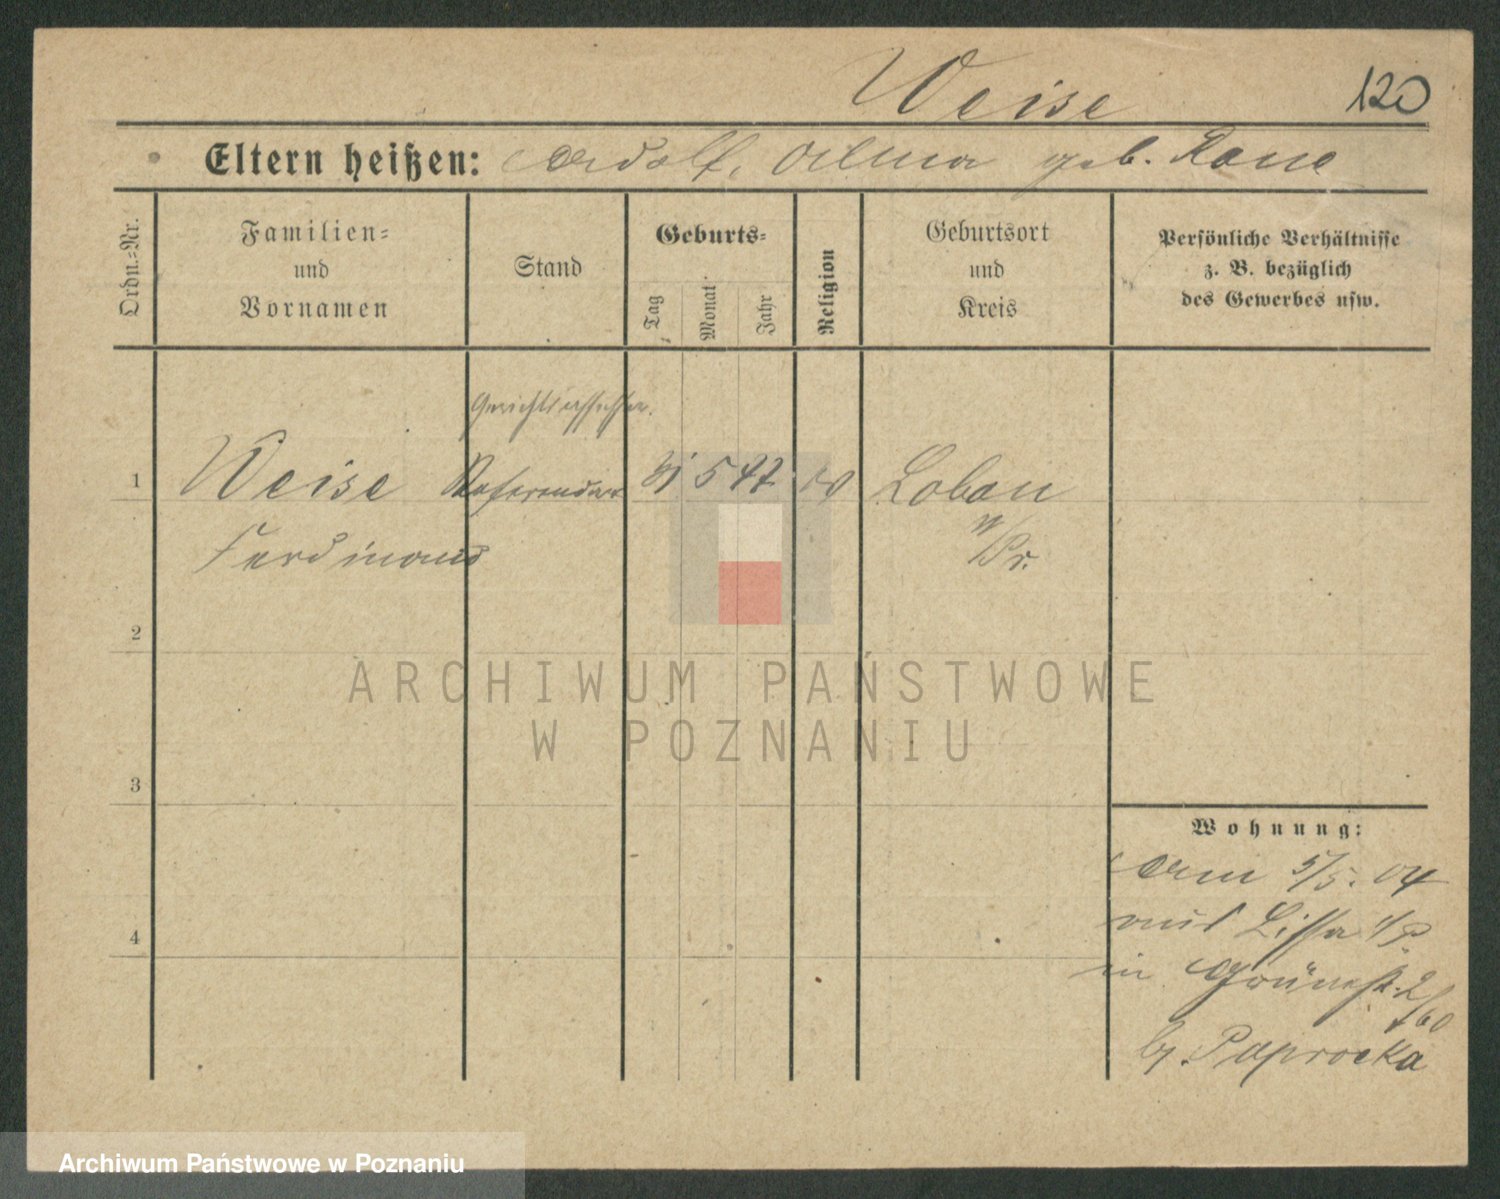 Weise
120
Eltern heißen: Adolf, Alma geb. Rane
Ordn.-Nr.
Familien-
und
Vornamen
Stand
Geburts-
Tag
Monat
Jahr
Religion
Geburtsort
und
Kreis
Persönliche Verhältnisse
z. B. bezüglich
des Gewerbes usw.
1
Weise
Referendar
5
Löbau
Ferdinand
W/Pr.
2
3
4
ARCHIWUM PAŃSTWOWE
W POZNANIU
Wohnung:
Am 5/5. 04
aus Lissa i/P.
in
b/ Paprocka
Archiwum Państwowe w Poznaniu